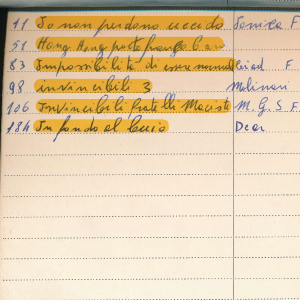 41 Io non perdono uccido Fenisa F
51 Hong Kong porto franco
83 Impossibilità di essere normale F.
98 invincibili 3 Molinari
106 Invincibili fratelli Maciste M. G. S F
184 In fondo al buio Dear